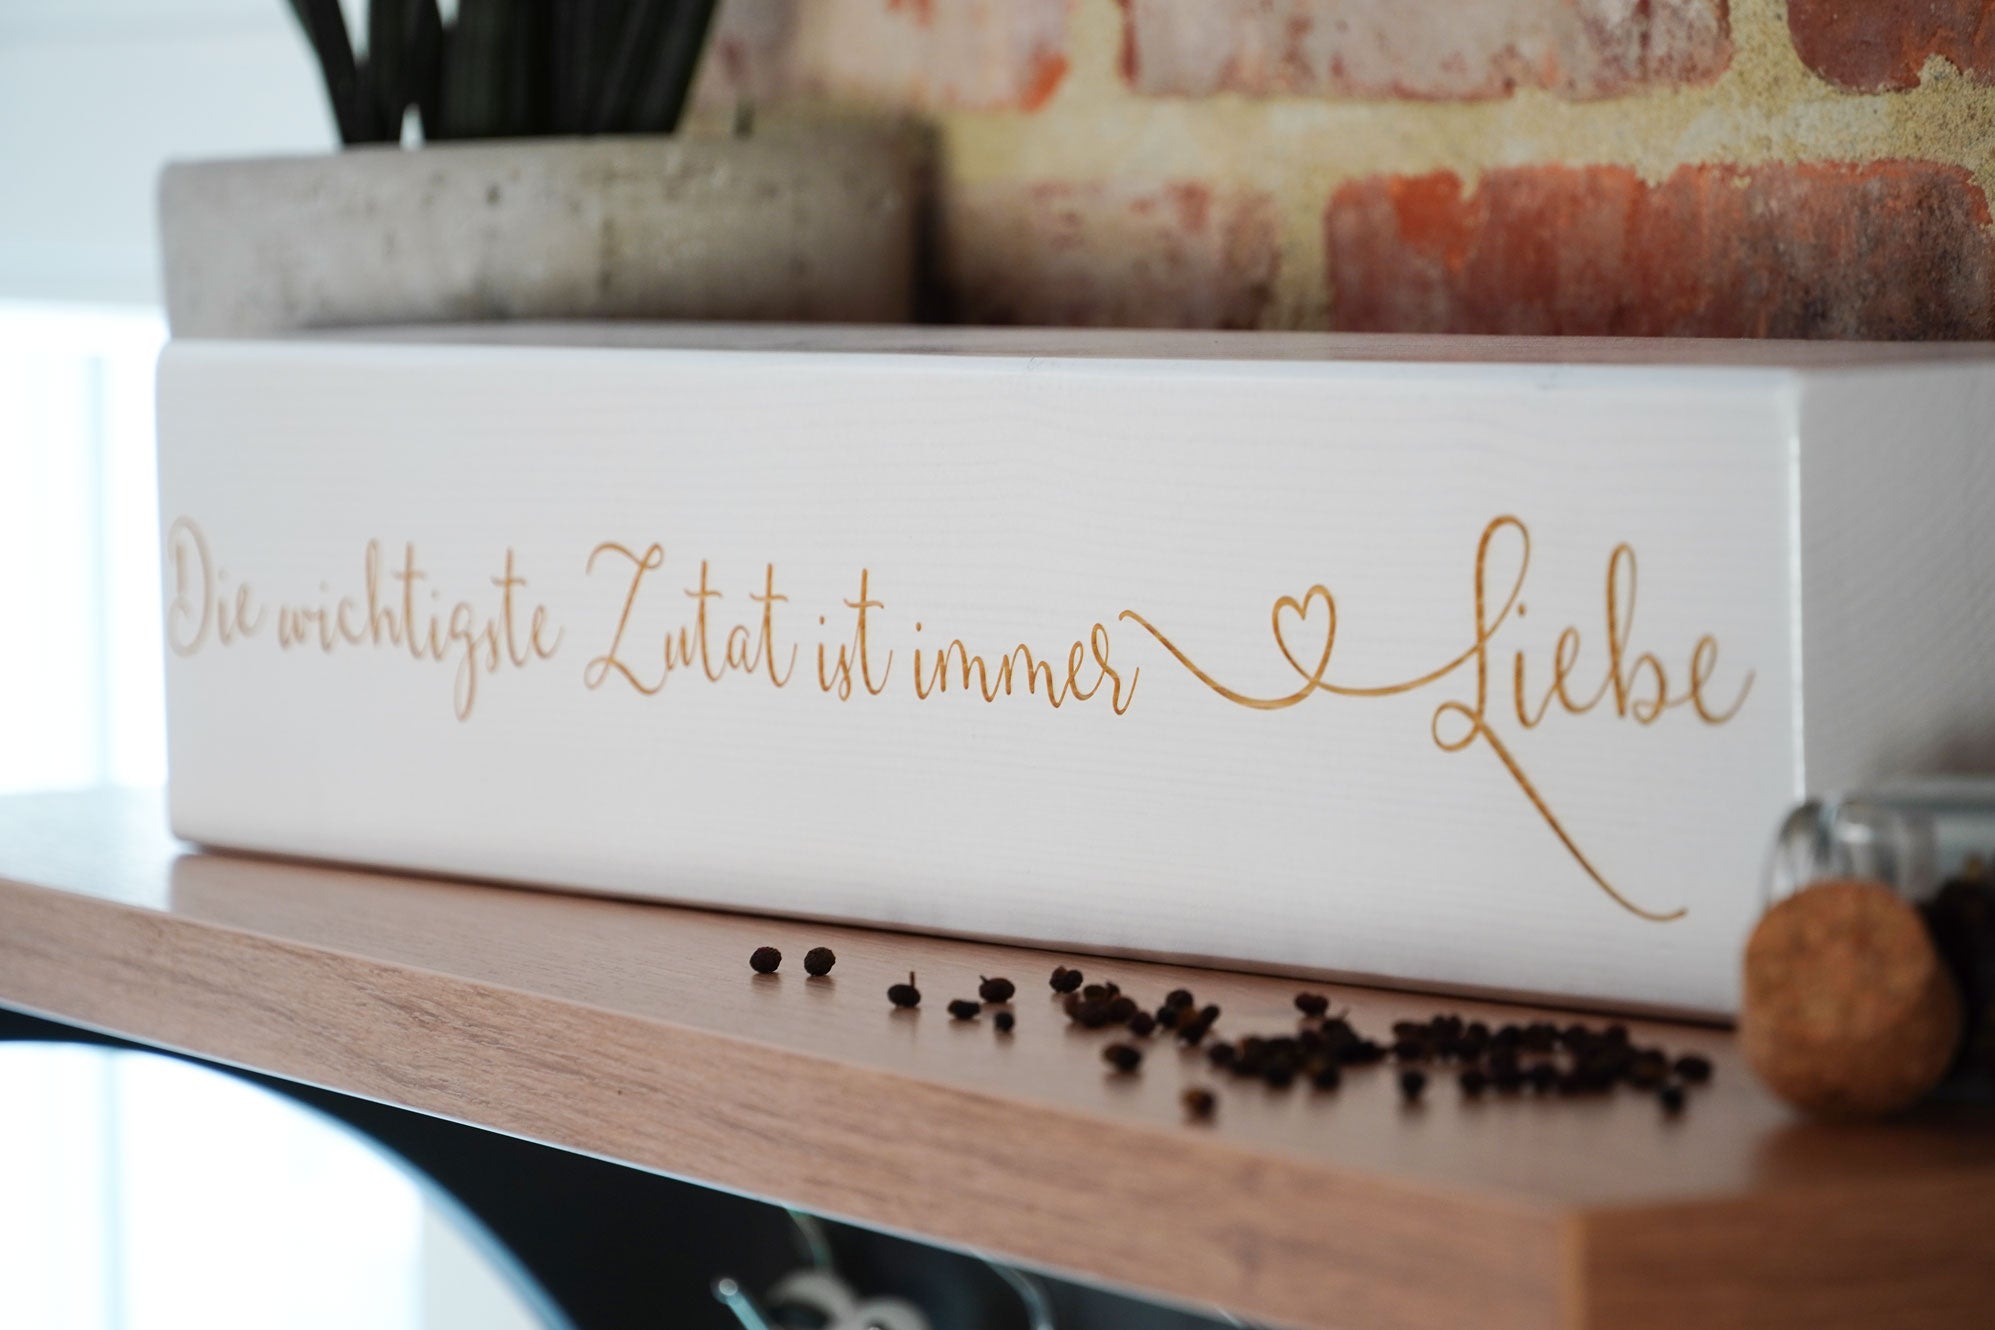 Die wichtigste Zutat ist immer Liebe